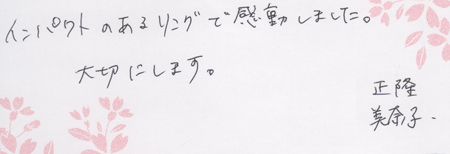 インパクトのあるリングで感動しました。
大切にします。
正隆
美奈子.